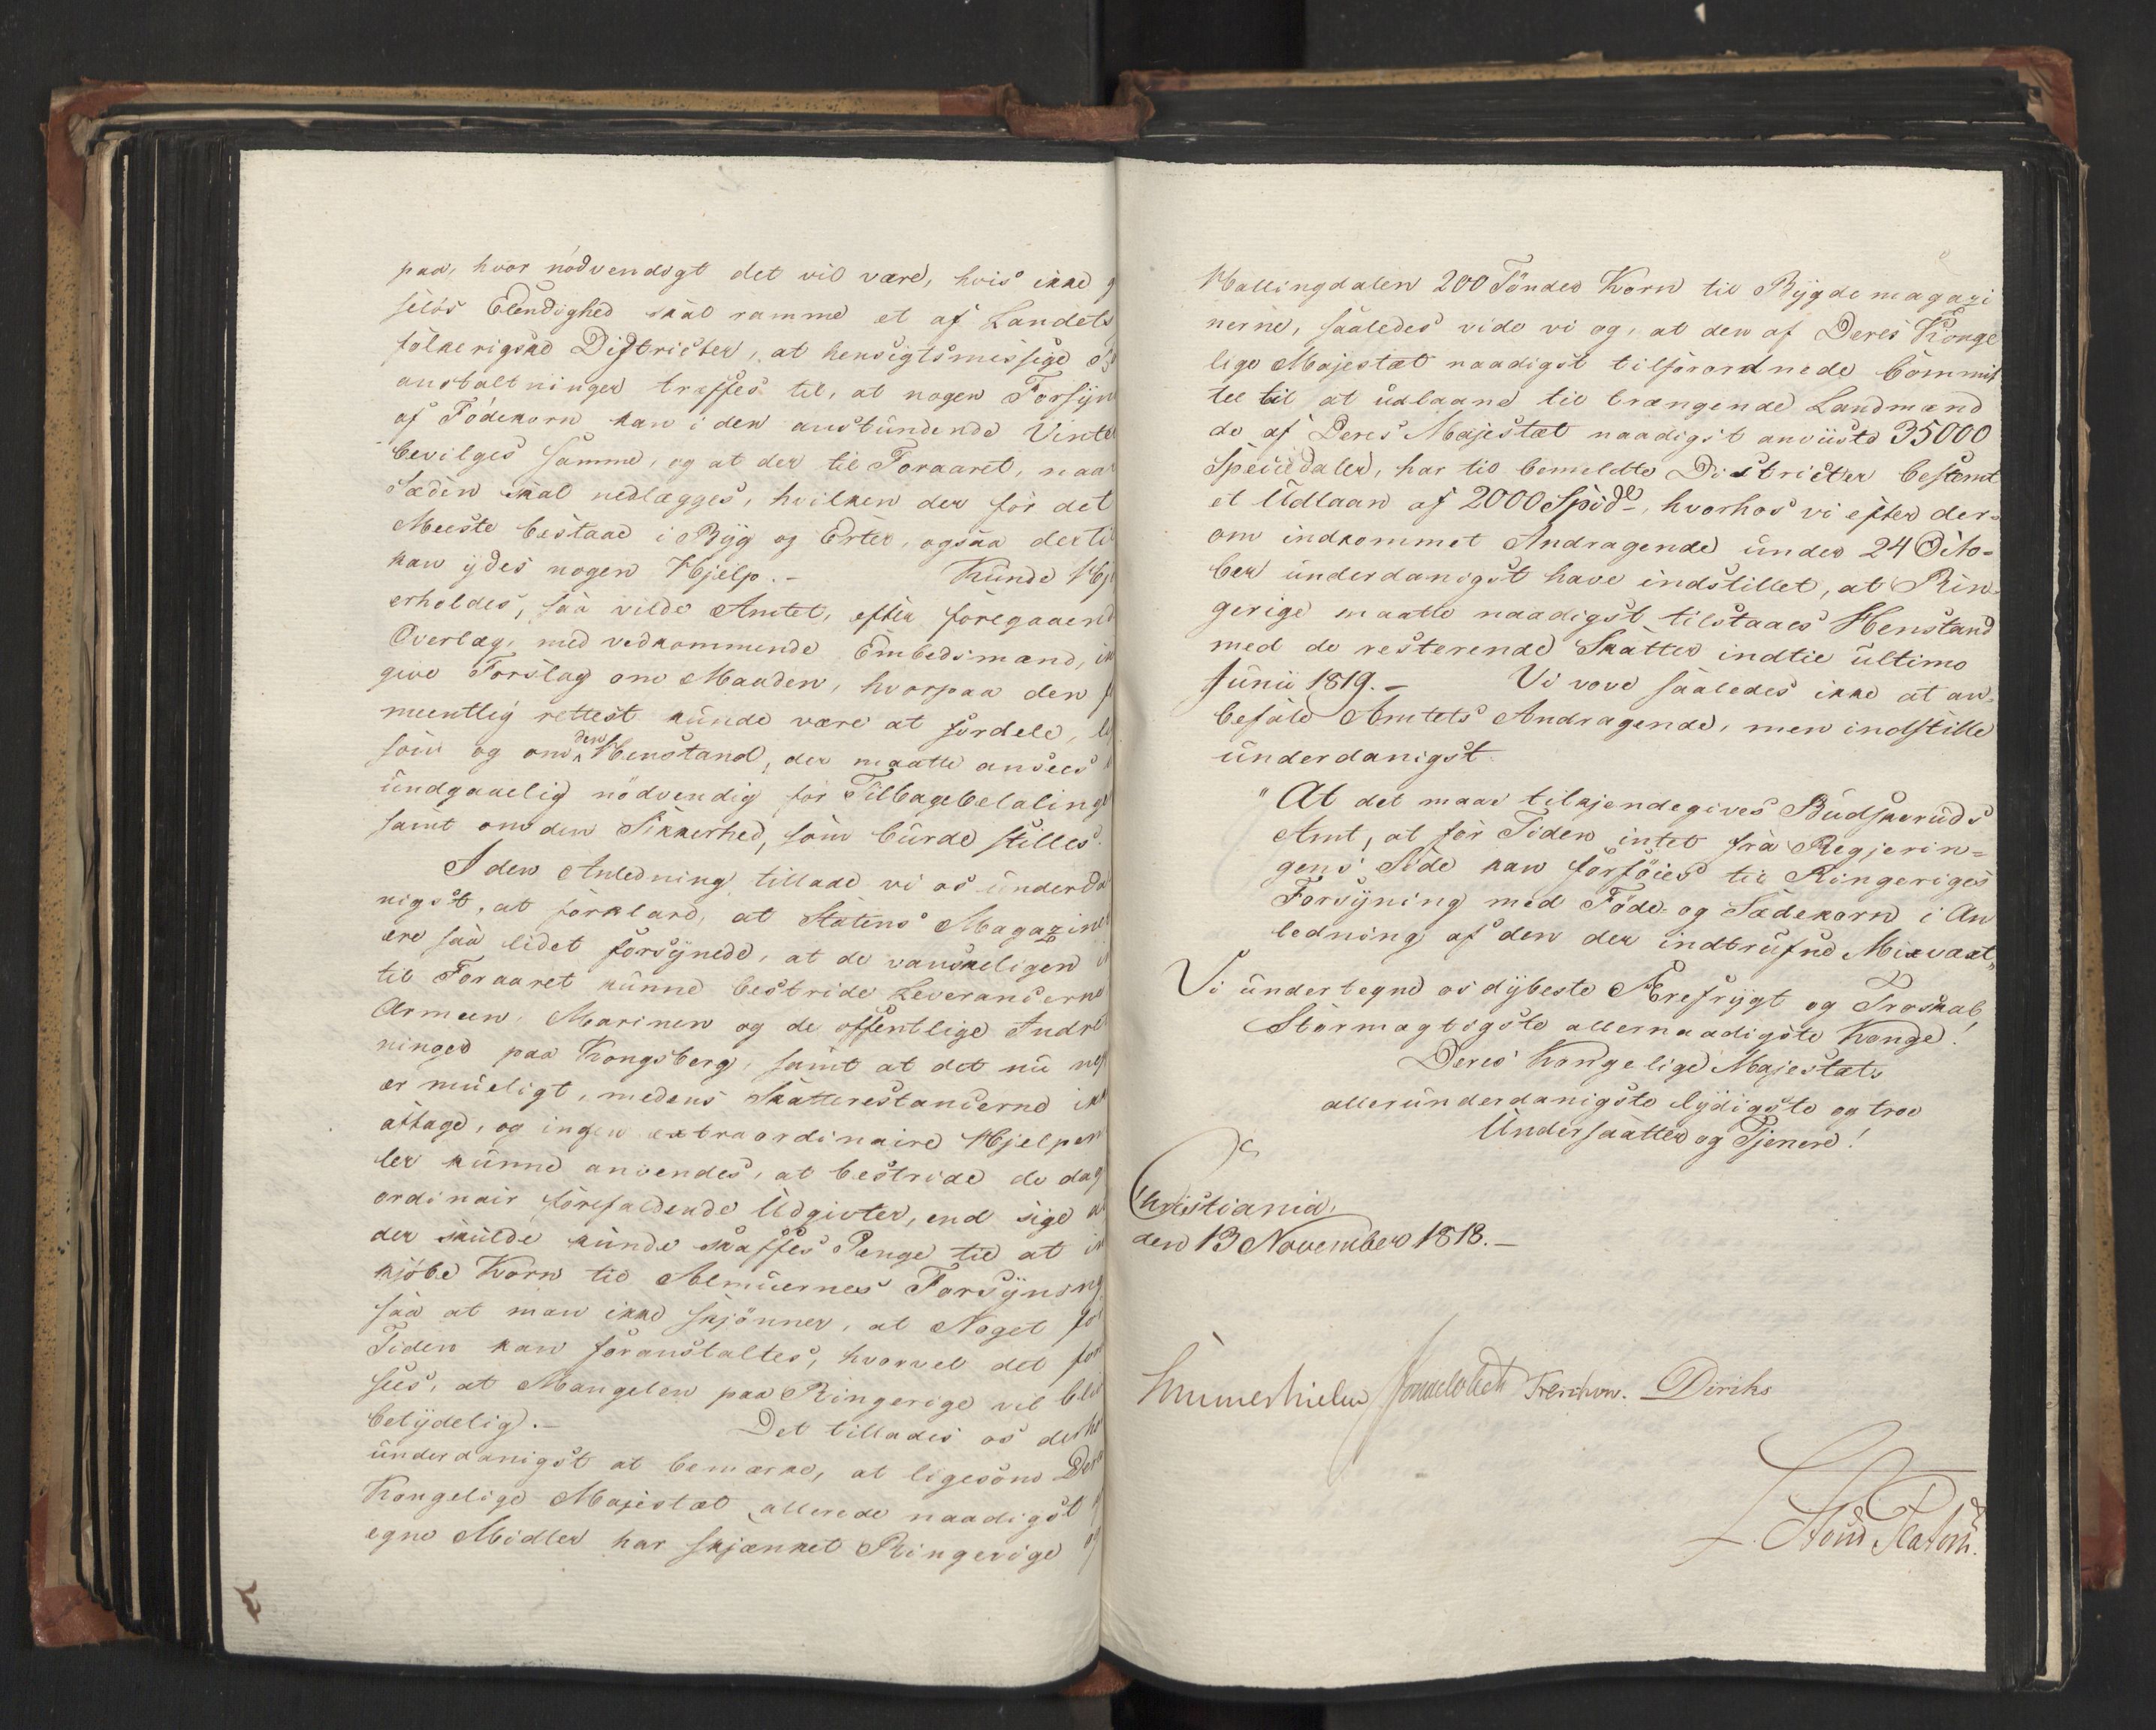 paa, hvor nödvendigt det vil være, hvis ikke
selös Elendighed skal ramme et af Landets
folkerigske Districter, at hensigtsmæssige
anstaltninger træffes til, at nogen Forsÿn
af Födekorn kan i den anstundende Vinte
bevilges samme, og at der til Foraaret, naar
Sæden skal nedlægges, hvilken der for det
Meeste bestaae i Bÿg og Erter, ogsaa dertil
kan ÿdes nogen Hjelp. - Kunde Hje
erholdes, saa vilde Amtet, efter foregaaend
Overlæg, med vedkommende Embedsmænd, in
give Forslag om Maaden, hvorpaa den
meentlig rettest kunde være at fordele, li
som og om den Henstand, der maatte ansees
undgaaelig nödvendig for Tilbagebetalinge
samt om den Sikkerhed, som burde stilles.
I den Anledning tillade vi os underda
nigst, at forklare, at Statens Magazine
ere saa lidet forsÿnede, at de vanskeligen
til Foraaret kunne bestride Leverancerne
Armeen, Marinen og de offentlige Indre
ninger paa Kongsberg, samt at det nu nep
er mueligt, medens Skatterestancerne ikk
aftage, og ingen extraordinaire Hjelpem
ler kunne anvendes, at bestride de dag
ordinair forefaldende Udgivter, end sige at
der skulde kunde skaffes Penge til at in
kjöbe Korn til Almuernes Forsÿning
saa at man ikke skjönner, at Noget for
Tiden kan foranstaltes, hvorvel det for
sees, at Mangelen paa Ringerige vil bli
betÿdelig. - Det tillades os derho
underdanigst at bemærke, at ligesom De
Kongelige Majestæt allerede naadigst
egne Midler har skjænket Ringerige og
Hallingdalen 200 Tönder Korn til Bÿgdemagazi
nerne, saaledes vide vi og, at den af Deres Konge
lige Majestæt naadigst tilforordnede Commit
tee til at udlaane til trængende Landmænd
de af Deres Majestæt naadigst anviiste 35000
Speciedaler, har til bemeldte Districter bestemt
et Udlaan af 2000 Spdl, hvorhos vi efter der-
om indkommet Andragende under 24 Octo-
ber underdanigst have indstillet, at Rin-
gerige maatte naadigst tilstaaes Henstand
med de resterende Skatter indtil ultimo
Junii 1819. - Vi vove saaledes ikke at an-
befale Amtets Andragende, men indstille
underdanigst:
"At det maae tilkjendegives Budskeruds
Amt, at for Tiden intet fra Regjerin-
gens Side kan forföies til Ringeriges
Forsÿning med Föde- og Sædekorn i An
ledning af den der indtrufne Misvæxt"
Vi undertegne os dÿbeste Ærefrÿgt og Troskab
Stormægtigste allernaadigste Konge!
Deres Kongelige Majestæts
allerunderdanigste lÿdigste og troe
Undersaatter og Tjenere!
Christiania,
den 13 November 1818. -
Hummerhielm Sommerhielm Treschow. Diriks
L. Stoud Platou.